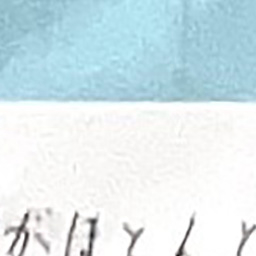 がほとんと